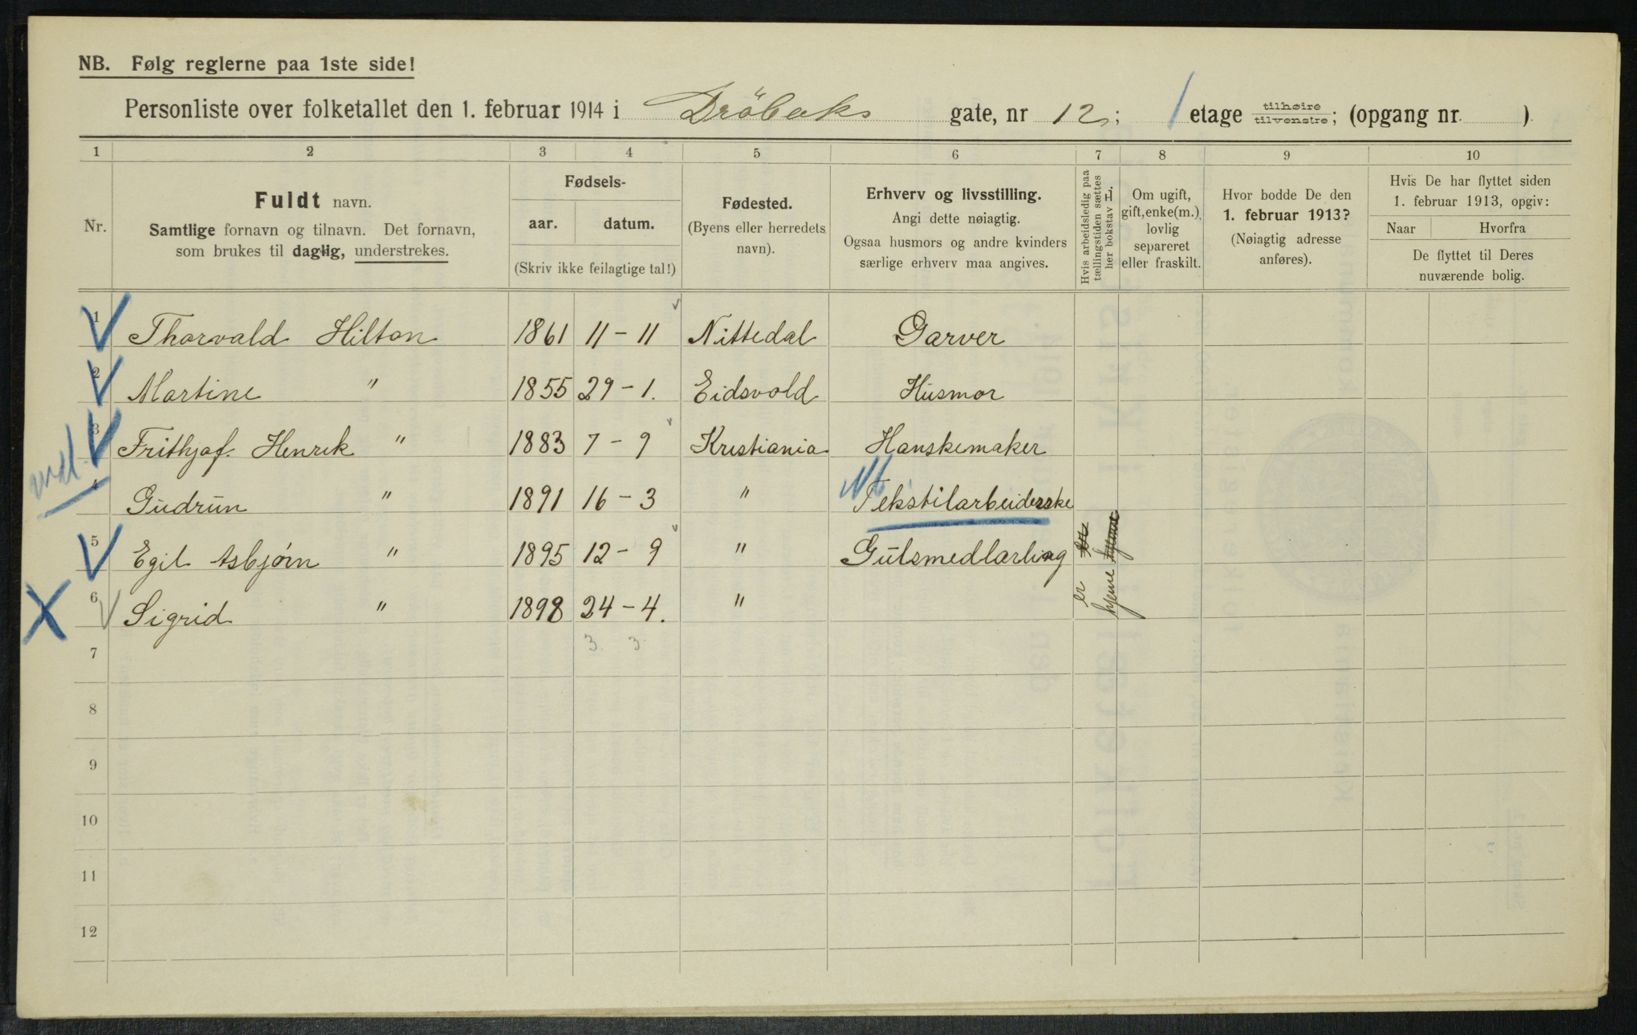 NB. Følg reglerne paa 1ste side!
Personliste over folketallet den 1. februar 1914 i Dröbaks gate, nr 12; 1 etage tilhøire tilvenstre; (opgang nr. )
1 2 3 4 5 6 7 8 9 10
Nr.
Fuldt navn.
Samtlige fornavn og tilnavn. Det fornavn,
som brukes til daglig, understrekes.
Fødsels-
aar. datum.
(Skriv ikke feilagtige tal!)
Fødested.
(Byens eller herredels
navn).
Erhverv og livsstilling.
Angi dette nøiagtig.
Ogsaa husmors og andre kvinders
særlige erhverv maa angives.
Hvis arbeidsledig paa
tællingstiden sættes
her bokstav L.
Om ugift,
gift, enke(m.),
lovlig
separeret
eller fraskilt.
Hvor bodde De den
1. februar 1913?
(Nøiagtig adresse
anføres).
Hvis De har flyttet siden
1. februar 1913, opgiv:
Naar Hvorfra
De flyttet til Deres
nuværende bolig.
1 Thorvald Hilton 1861 11-11 Nittedal Garver
2 Martine " 1855 29-1. Eidsvold Husmor
3 Frithjof. Henrik " 1883 7-9 Kristiania Hanskemaker
4 Gudrun " 1891 16-3 " Tekstilarbeiderske
5 Egil Asbjørn " 1895 12-9 " Gulsmedlærling
6 Sigrid " 1898 24-4. " er hjeme
3 3
7
8
9
10
11
12